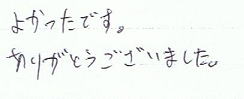 よかったです。
ありがとうございました。